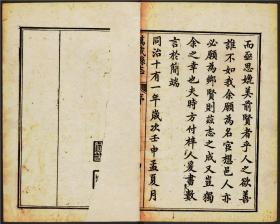 而亟思媲美前賢者乎人之欲善
誰不如我余願為名宦想邑人亦
必願為鄉賢則茲志之成又豈獨
余之幸也夫時方付梓人爰書數
言於簡端
同治十有一年歲次壬申孟夏月